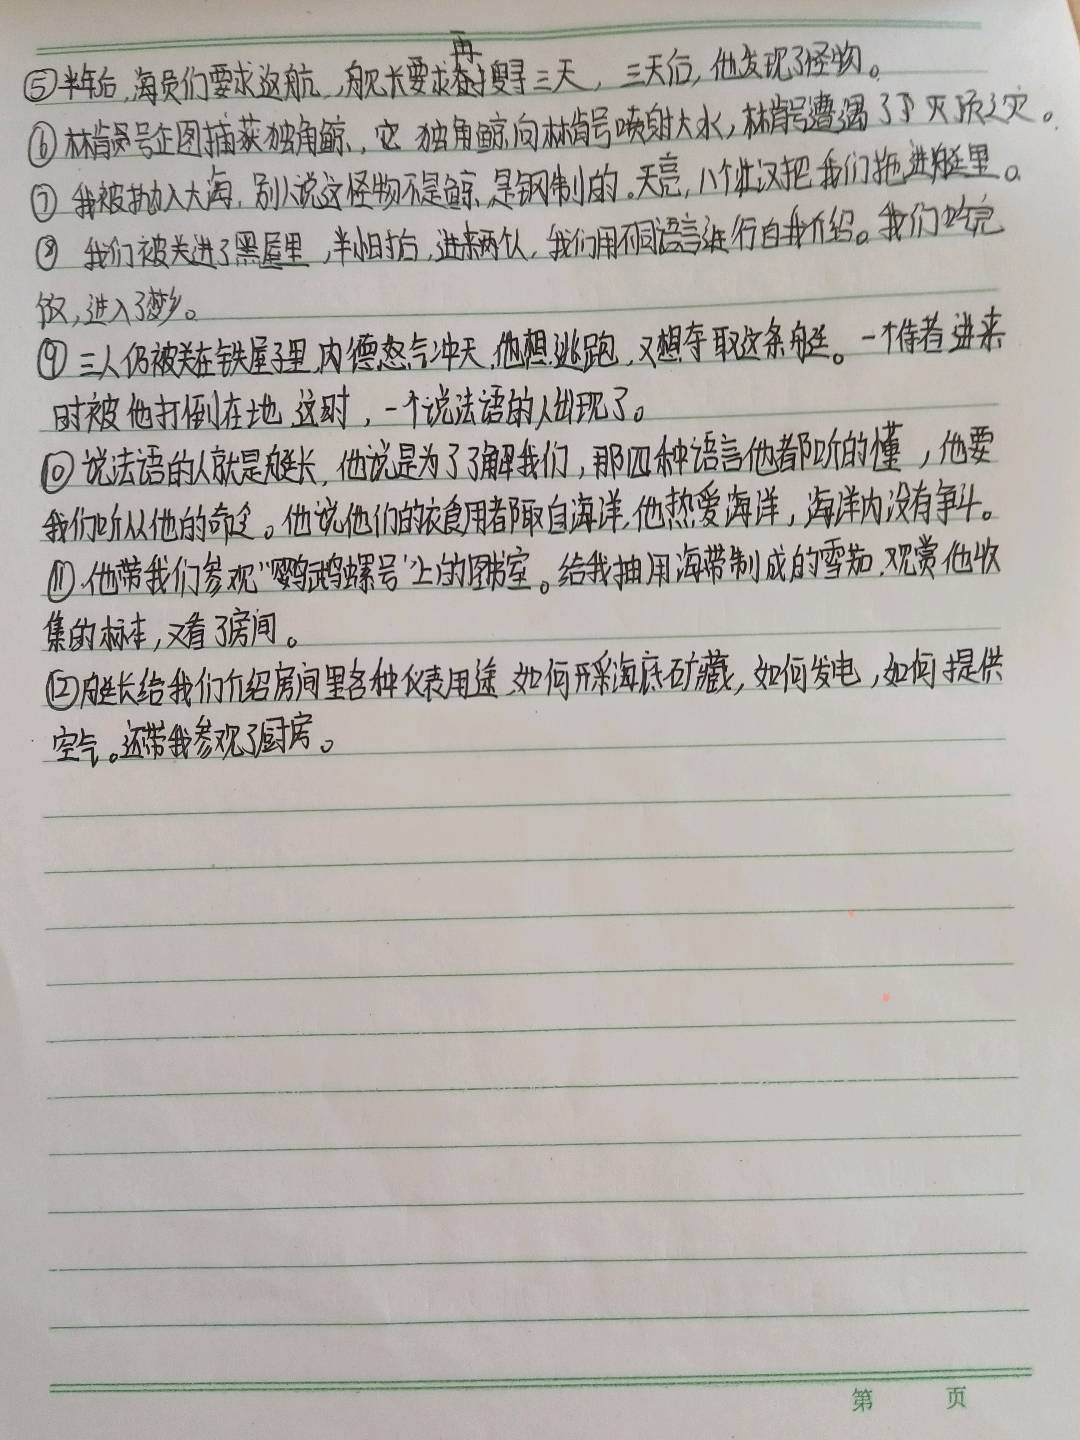 ⑤半年后,海员们要求返航,舰长要求再搜寻三天,三天后,他发现了怪物。
⑥林肯号企图捕获独角鲸,它 独角鲸向林肯号喷射大水,林肯号遭遇了灭顶之灾。
⑦ 我被抛入大海,别人说这怪物不是鲸,是钢制的。天亮,八个壮汉把我们拖进艇里。
⑧ 我们被关进了黑屋里,半小时后,进来两个人,我们用不同语言进行自我介绍。我们吃完
饭,进入了梦乡。
⑨三人仍被关在铁屋子里,内德怒气冲天,他想逃跑,又想夺取这条艇。一个侍者进来
时被他打倒在地 这时,一个说法语的人出现了。
⑩说法语的人就是艇长,他说是为了了解我们,那四种语言他都听的懂,他要
我们听从他的命令。他说他们的衣食用都取自海洋,他热爱海洋,海洋内没有争斗。
⑪他带我们参观“鹦鹉螺号”上的图书室。给我抽用海带制成的雪茄,观赏他收
集的标本,又看了房间。
⑫艇长给我们介绍房间里各种仪表用途,如何开采海底矿藏,如何发电,如何提供
空气。还带我参观了厨房。
第 页